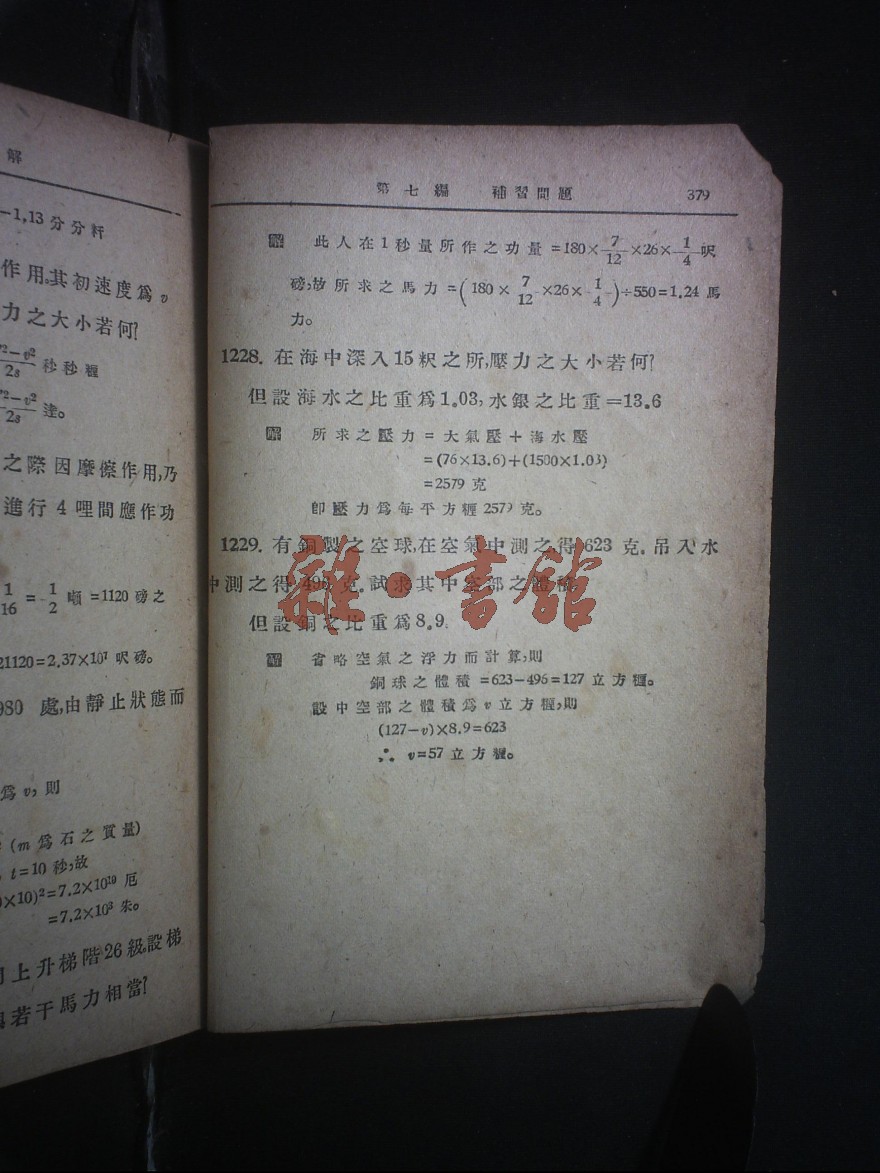 解
-1,13 分 分 粁
作 用。其 初 速 度 爲 v
力 之 大 小 若 何?
秒 秒 糎
2s
達。
2s
之 際 因 摩 擦 作 用,乃
進 行 4 哩 間 應 作 功
1/16 = 1/2 噸 =1120 磅 之
21120=2.37×10⁷ 呎 磅。
980 處,由 靜 止 狀 態 而
爲 v, 則
(m 爲 石 之 質 量)
t=10 秒,故
×10)²=7.2×10¹⁰ 厄
=7.2×10³ 朱。
上 升 梯 階 26 級。設 梯
若 干 馬 力 相 當?
第 七 編 補 習 問 題 379
解 此 人 在 1 秒 量 所 作 之 功 量 =180×7/12×26×1/4 呎
磅,故 所 求 之 馬 力 =(180×7/12×26×1/4)÷550=1.24 馬
力。
1228. 在 海 中 深 入 15 粎 之 所,壓 力 之 大 小 若 何?
但 設 海 水 之 比 重 爲 1.03, 水 銀 之 比 重 =13.6
解 所 求 之 壓 力 = 大 氣 壓 + 海 水 壓
=(76×13.6)+(1500×1.03)
=2579 克
卽 壓 力 爲 每 平 方 糎 2579 克。
1229. 有 銅 製 之 空 球,在 空 氣 中 測 之,得 623 克。吊 入 水
中 測 之 得 496 克。試 求 其 中 空 部 之 體 積。
但 設 銅 之 比 重 爲 8.9.
解 省 略 空 氣 之 浮 力 而 計 算,則
銅 球 之 體 積 =623-496=127 立 方 糎。
設 中 空 部 之 體 積 爲 v 立 方 糎,則
(127-v)×8.9=623
∴ v=57 立 方 糎。
雜·書館